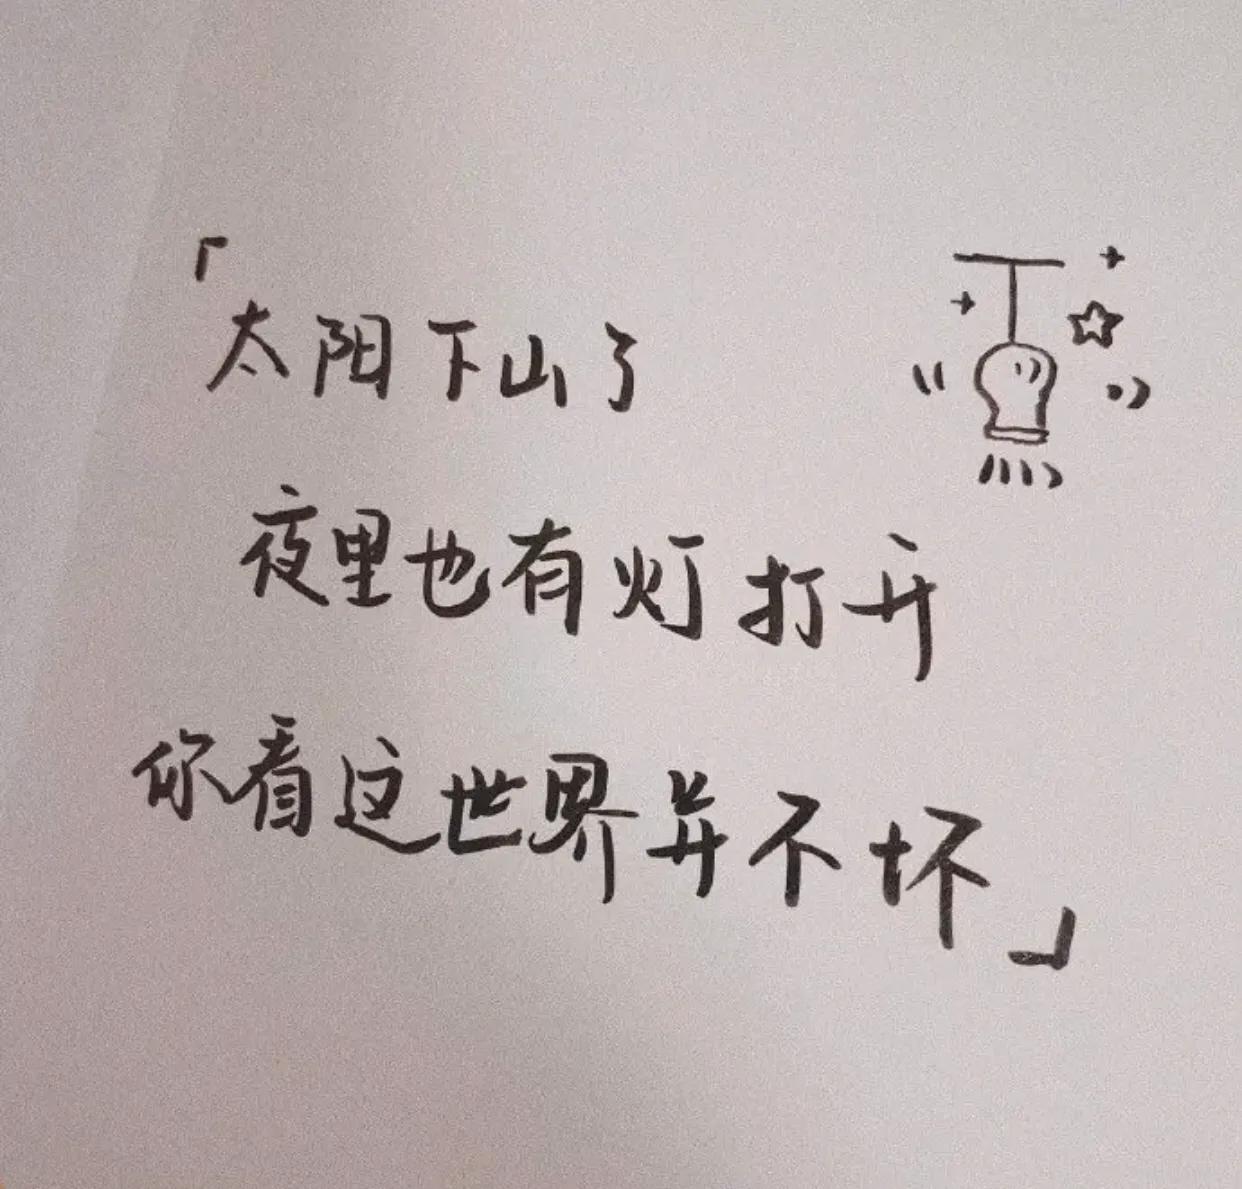 「
太阳下山了
夜里也有灯打开
你看这世界并不坏
」